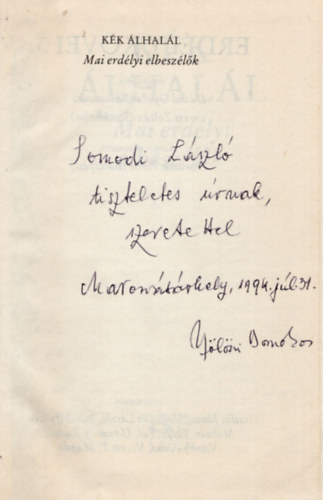 KÉK ÁLHALÁL
Mai erdélyi elbeszélők
Somodi László
tiszteletes úrnak,
szeretettel
Marosvásárhely, 1994. júl. 31.
Nölösi Domokos